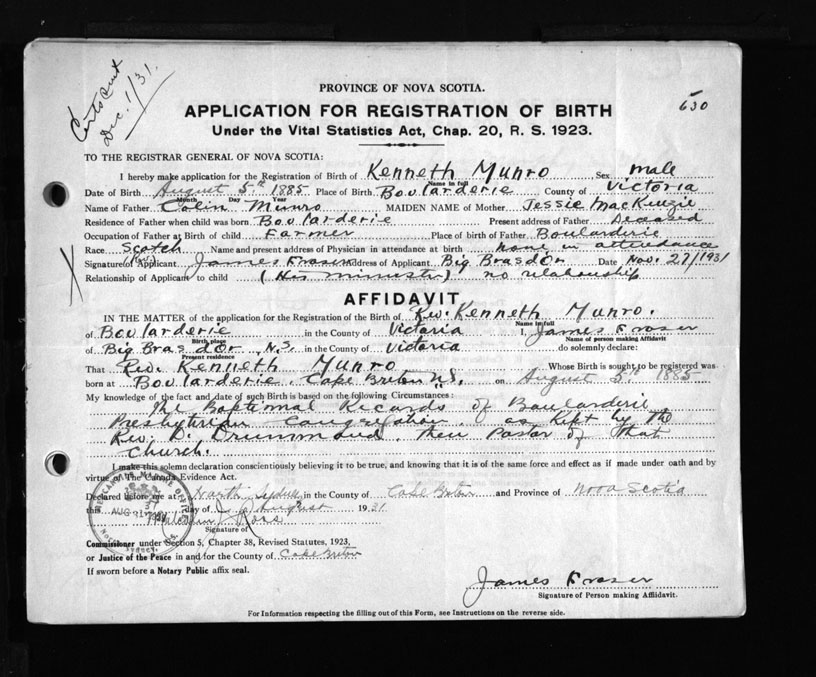 Certs sent
Dec. 1/31.
630
PROVINCE OF NOVA SCOTIA.
APPLICATION FOR REGISTRATION OF BIRTH
Under the Vital Statistics Act, Chap. 20, R. S. 1923.
TO THE REGISTRAR GENERAL OF NOVA SCOTIA:
I hereby make application for the Registration of Birth of Kenneth Munro Sex male
Name in full
Date of Birth August 5th 1885 Place of Birth Boularderie County of Victoria
Month Day Year
Name of Father Colin Munro MAIDEN NAME of Mother Jessie MacKenzie
Residence of Father when child was born Boularderie Present address of Father Deceased
Occupation of Father at Birth of child Farmer Place of birth of Father Boularderie
Race Scotch Name and present address of Physician in attendance at birth none in attendance
Signature of Applicant (Rev.) James Fraser Address of Applicant Big Bras d'Or Date Nov. 27/1931
Relationship of Applicant to child (His minister) no relationship
AFFIDAVIT
IN THE MATTER of the application for the Registration of the Birth of Rev. Kenneth Munro.
Name in full
of Boularderie in the County of Victoria I, James Fraser
Birth place Name of person making Affidavit
of Big Bras d'Or N.S. in the County of Victoria do solemnly declare:
Present residence
That Rev. Kenneth Munro Whose Birth is sought to be registered was
born at Boularderie, Cape Breton N.S. on August 5th 1885
My knowledge of the fact and date of such Birth is based on the following Circumstances:
The Baptismal Records of Boularderie
Presbyterian Congregation, as kept by the
Rev. D. Drummond, then Pastor of that
Church.
I make this solemn declaration conscientiously believing it to be true, and knowing that it is of the same force and effect as if made under oath and by
virtue of The Canada Evidence Act.
Declared before me at North Sydney in the County of Cape Breton and Province of Nova Scotia
this day of August 1931
Ross
Signature of
Commissioner under Section 5, Chapter 38, Revised Statutes, 1923,
or Justice of the Peace in and for the County of Cape Breton
If sworn before a Notary Public affix seal.
James Fraser
Signature of Person making Affidavit.
For Information respecting the filling out of this Form, see Instructions on the reverse side.